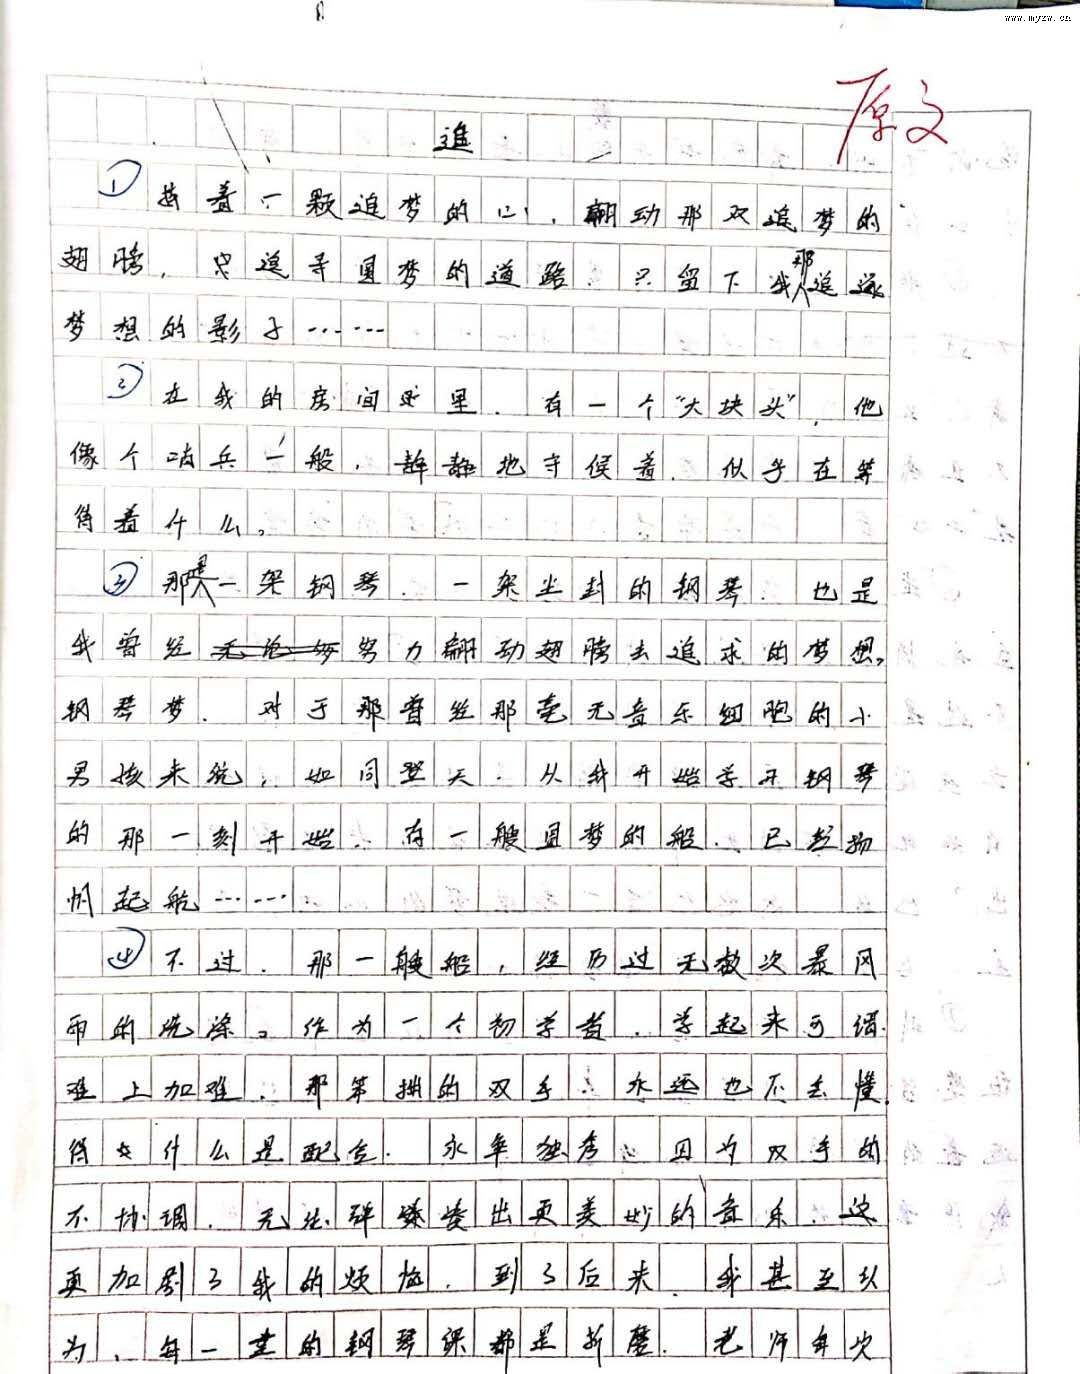 www.myzw.cn
原文
追
①携着一颗追梦的心，翻动那双追梦的
翅膀，去追寻圆梦的道路，只留下我那追逐
梦想的影子……
②在我的房间里，有一个“大块头”，他
像个哨兵一般，静静地守候着，似乎在等
待着什么。
③那是一架钢琴，一架尘封的钢琴，也是
我曾经努力翻动翅膀去追求的梦想。
钢琴梦，对于那曾经那毫无音乐细胞的小
男孩来说，如同登天，从我开始学开钢琴
的那一刻开始，有一艘圆梦的船，已扬
帆起航……
④不过，那一艘船，经历过无数次暴风
雨的洗涤。作为一个初学者，学起来可谓
难上加难，那笨拙的双手，永远也不去懂
得什么是配合，永是独秀，因为双手的
不协调，无法弹奏出更美妙的音乐，这
更加剧了我的烦恼，到了后来，我甚至认
为，每一堂的钢琴课都是折磨，老师每次